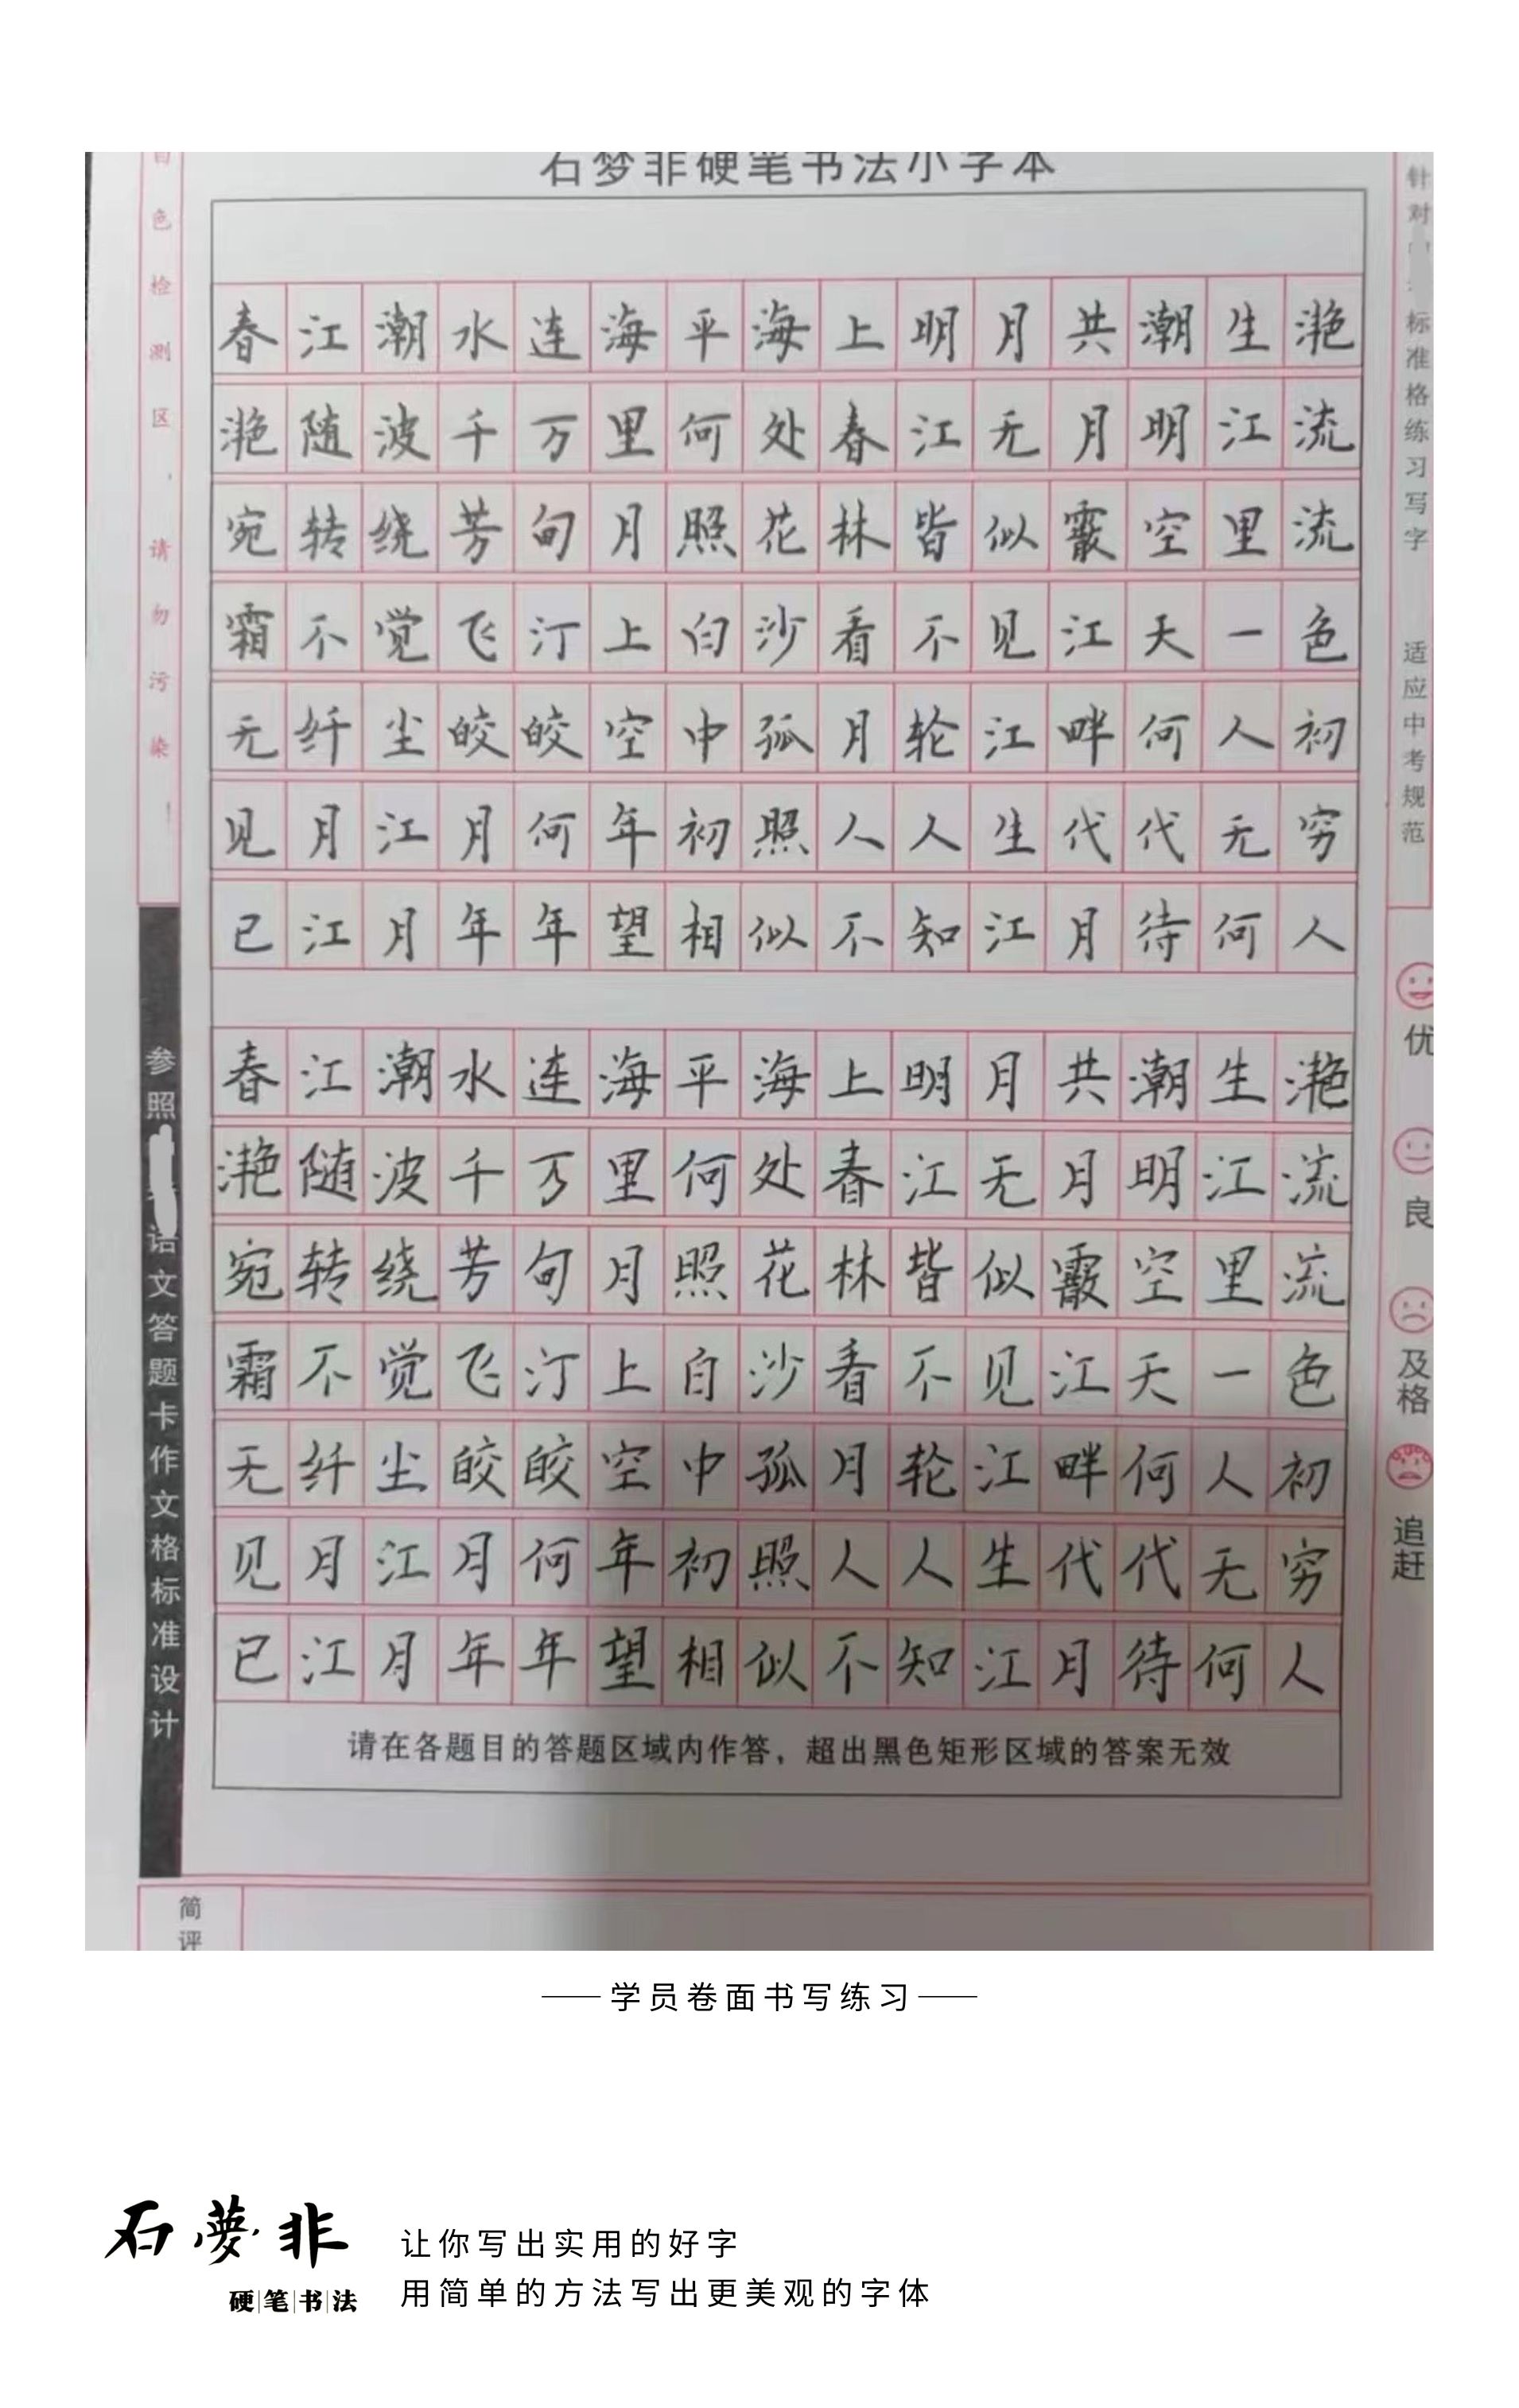 石梦非硬笔书法小字本
春江潮水连海平海上明月共潮生滟
滟随波千万里何处春江无月明江流
宛转绕芳甸月照花林皆似霰空里流
霜不觉飞汀上白沙看不见江天一色
无纤尘皎皎空中孤月轮江畔何人初
见月江月何年初照人人生代代无穷
已江月年年望相似不知江月待何人
春江潮水连海平海上明月共潮生滟
滟随波千万里何处春江无月明江流
宛转绕芳甸月照花林皆似霰空里流
霜不觉飞汀上白沙看不见江天一色
无纤尘皎皎空中孤月轮江畔何人初
见月江月何年初照人人生代代无穷
已江月年年望相似不知江月待何人
请在各题目的答题区域内作答，超出黑色矩形区域的答案无效
色检测区，请勿污染！
参照
语文答题卡作文格标准设计
针对
标准格练习写字
适应中考规范
优
良
及格
追赶
简评
学员卷面书写练习
石夢非
硬笔书法
让你写出实用的好字
用简单的方法写出更美观的字体